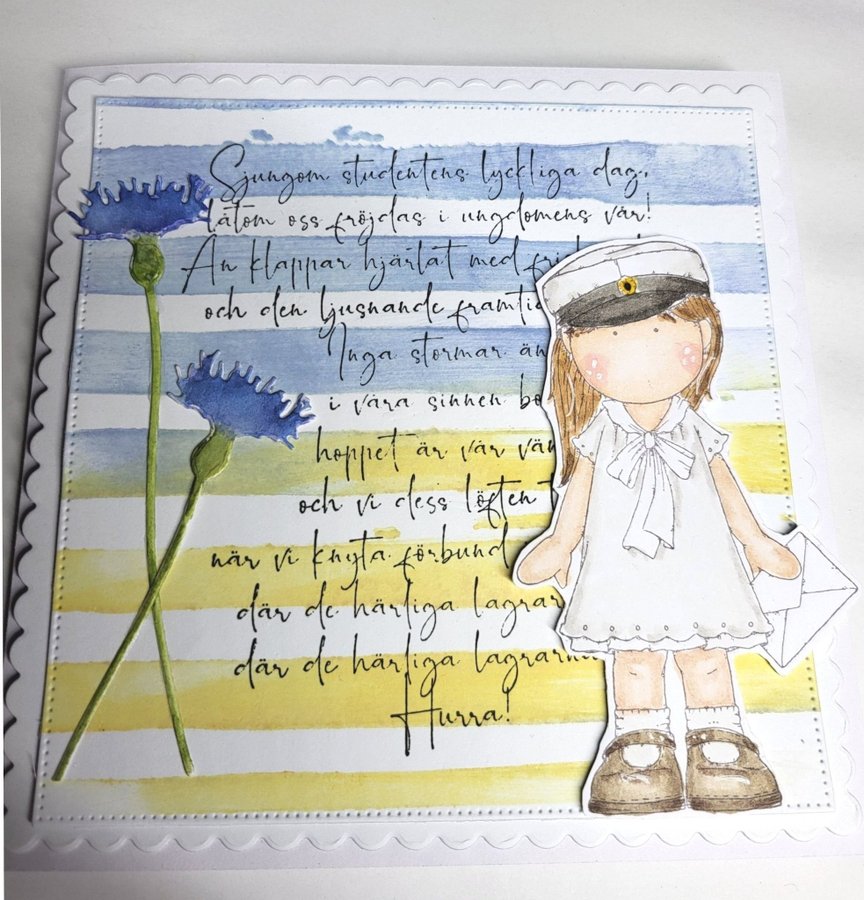 Sjungom studentens lyckliga dag,
låtom oss fröjdas i ungdomens vår!
Än klappar hjärtat med
och den ljusnande
Inga stormar än
i våra sinnen
hoppet är vår
och vi dess löften
när vi knyta förbund
där de härliga
där de härliga
Hurra!